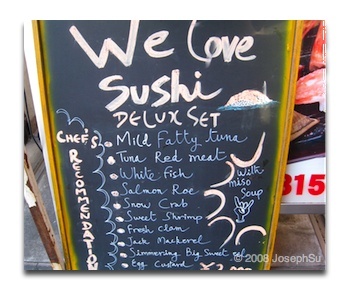 We Love
Sushi
DELUX SET
CHEF'S RECOMMENDATION
Mild Fatty tuna
Tuna Red meat
White fish
Salmon Roe
Snow Crab
Sweet Shrimp
Fresh clam
Jack Mackerel
Simmering Big Sweet eel
Egg Custard
With
miso
Soup
315
© 2008 JosephSu